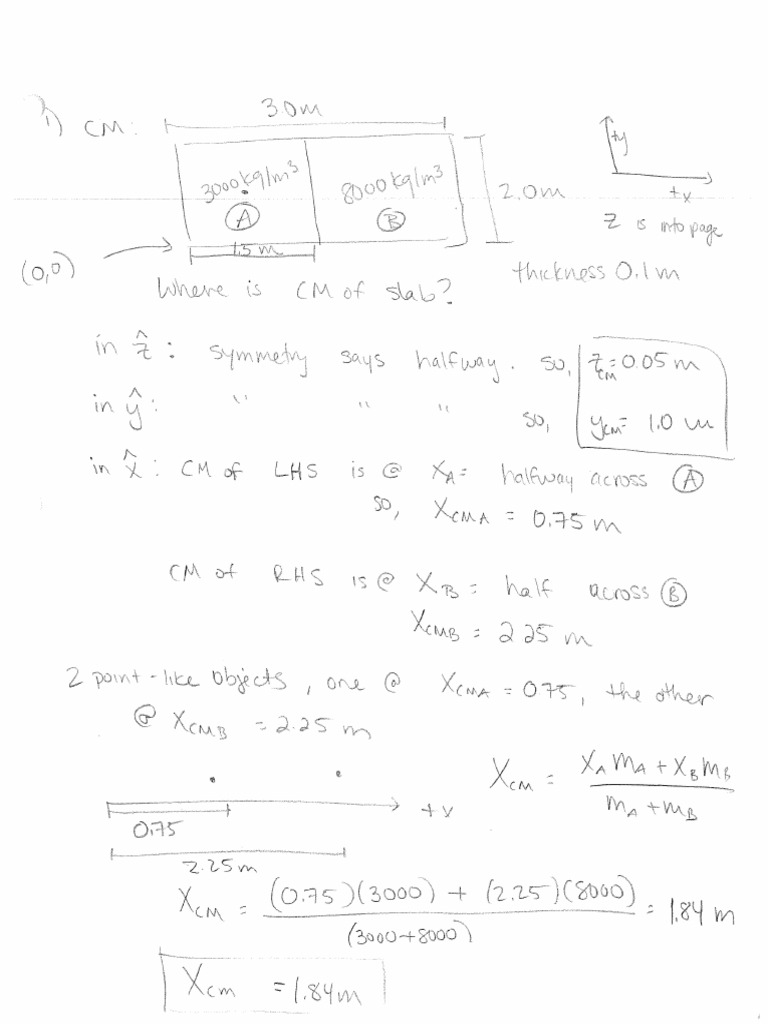 1) CM:
3.0m
3000kg/m³
8000kg/m³
Ⓐ
Ⓑ
1.5 m
2.0m
+y
+x
z is into page
(0,0)
Where is CM of slab?
thickness 0.1m
in ẑ : symmetry says halfway. so, z_CM = 0.05 m
in ŷ : " " " so, y_CM = 1.0 m
in x̂ : CM of LHS is @ X_A = halfway across Ⓐ
so, X_CMA = 0.75 m
CM of RHS is @ X_B = half across Ⓑ
X_CMB = 2.25 m
2 point-like objects, one @ X_CMA = 0.75, the other
@ X_CMB = 2.25 m
X_CM = (X_A m_A + X_B m_B) / (m_A + m_B)
+x
0.75
2.25m
X_CM = ((0.75)(3000) + (2.25)(8000)) / (3000+8000) = 1.84 m
X_cm = 1.84m